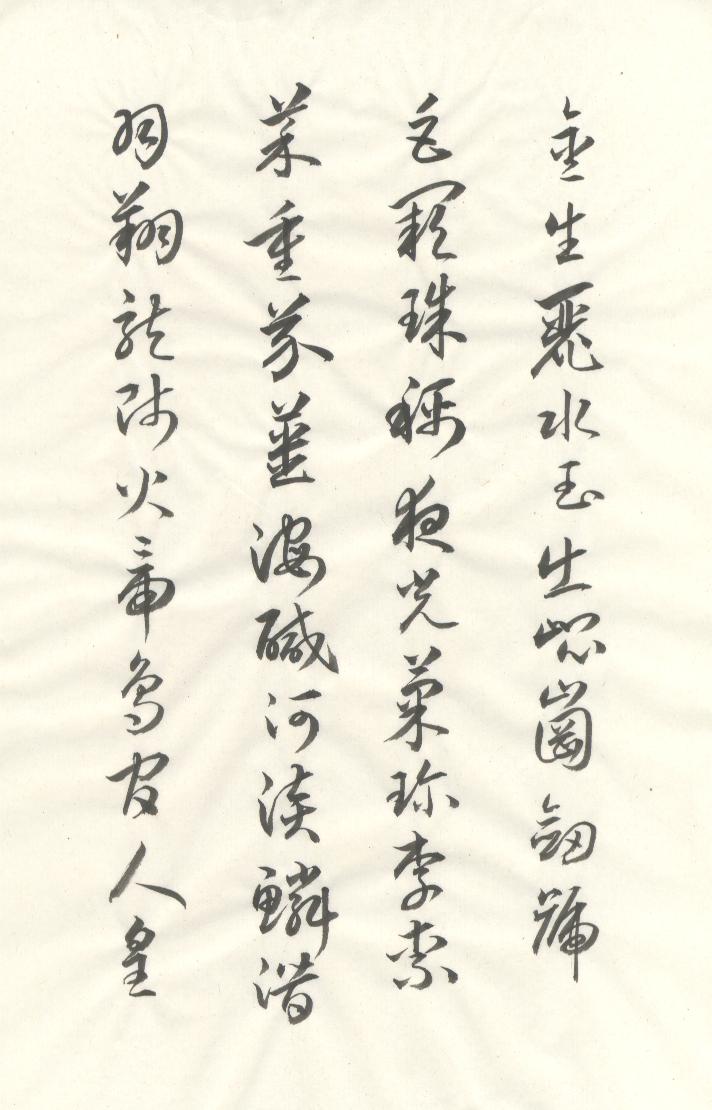 金生麗水玉出崑崗劍號
巨闕珠稱夜光菓珍李柰
菜重芥薑海鹹河淡鱗潛
羽翔龍師火帝鳥官人皇